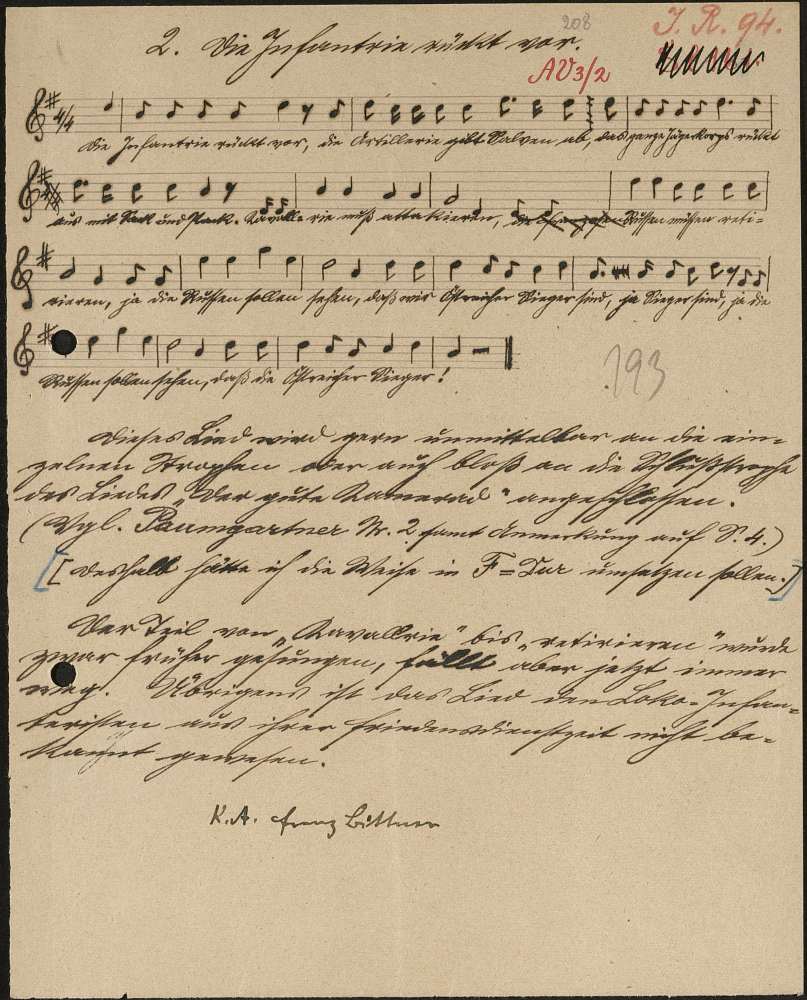 208
J. R. 94.
2. Die Infantrie rückt vor.
AV3/2
4/4
Die Infantrie rückt vor, die Artillerie gibt Salven ab, das ganze Jägerkorps rückt
aus mit Sack und Pack. Kavallerie muß attakieren, die Russen müssen reti=
rieren, ja die Russen sollen sehen, daß wir Östreicher Sieger sind, ja Sieger sind, ja die
Russen sollen sehen, daß die Östreicher Sieger!
193
Dieses Lied wird gern unmittelbar an die ein=
zelnen Strophen oder auch bloß an die Schlußstrophe
des Liedes „Der gute Kamerad" angeschlossen.
(Vgl. Baumgartner Nr. 2 samt Anmerkung auf S. 4.)
[Deshalb hätte ich die Weise in F=Dur umsetzen sollen.]
Der Teil von „Kavallrie" bis „retirieren" wurde
zwar früher gesungen, fällt aber jetzt immer
weg. Übrigens ist das Lied den Loko=Infan=
teristen aus ihrer Friedensdienstzeit nicht be=
kannt gewesen.
K.A. Franz Bittner